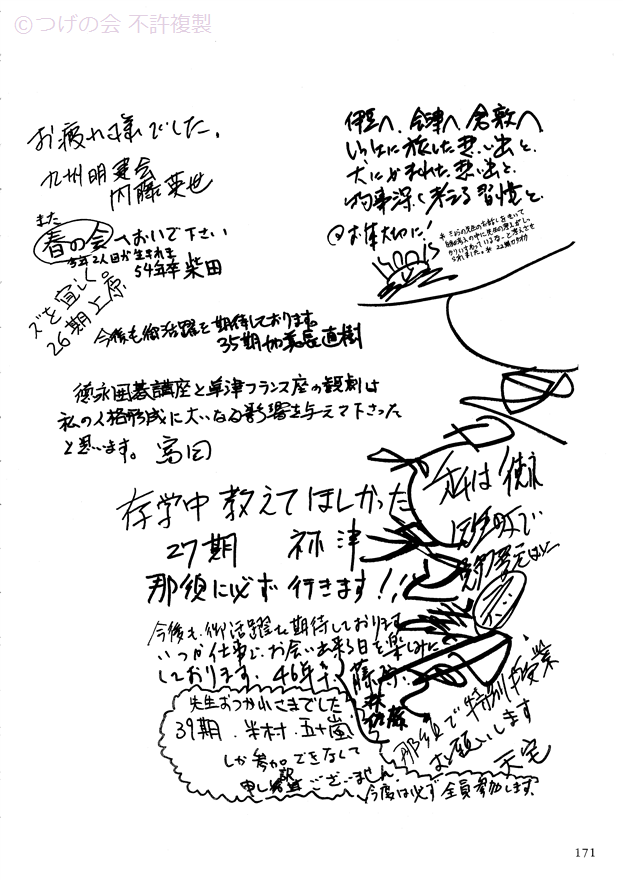 ©つげの会 不許複製
お疲れ様でした。
九州明実会
内藤英世
また
春の会へおいで下さい
今年2人目が生まれます
54年卒 柴田
ズを宜しく。
26期 上原
今後も御活躍を期待しております。
35期 加美長直樹
徳永囲碁講座と草津フランス座の観劇は
私の人格形成に大いなる影響を与えて下さった
と思います。 富田
伊豆へ、会津へ 倉敷へ
いっしょに旅した思い出と、
犬にかまれた思い出と、
物事深く考える習慣と、
お体大切に!
在学中 教えてほしかった
27期 祢津
那須に必ず行きます!!
今後も、御活躍を期待しております
いつか仕事で、お会い出来る日を楽しみに
しております。 46年卒
先生おつかれさまでした
39期 . 米村 . 五十嵐
しか参加できなくて
申し訳ございません
今度は必ず全員参加します。
那須で特別授業
お願いします
天宅
171